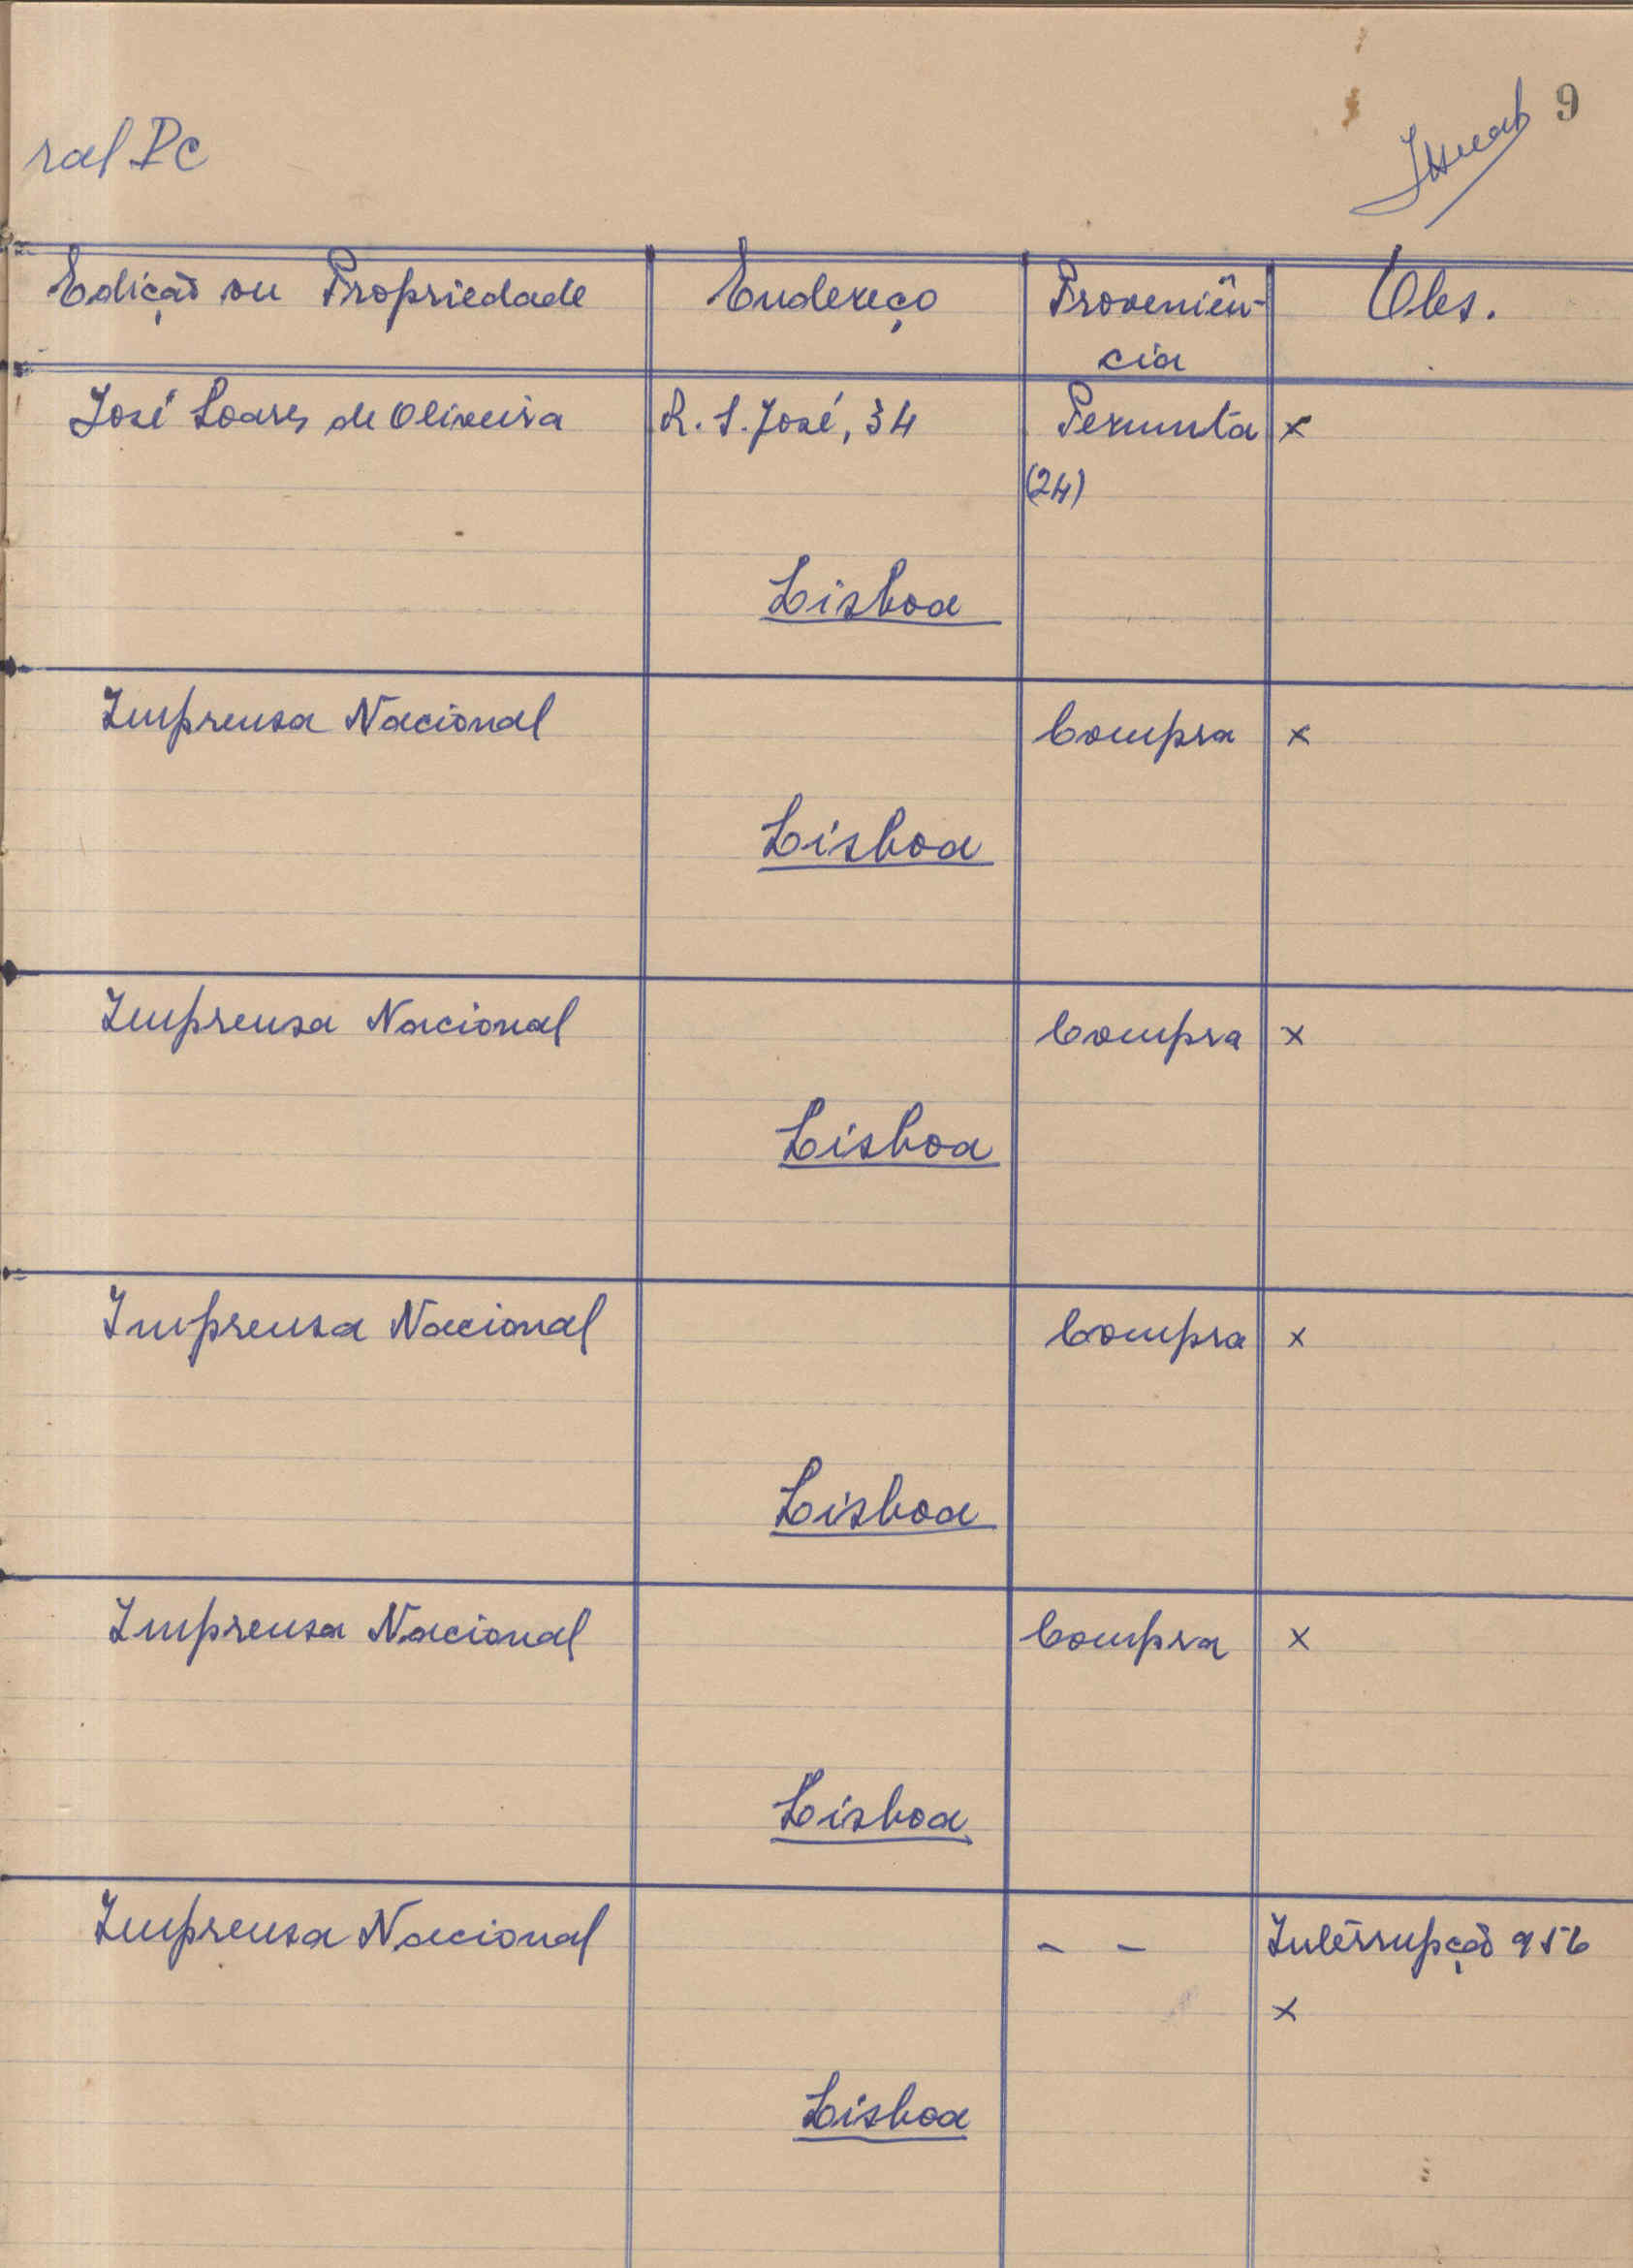 9
ral Dc
Edição ou Propriedade Endereço Proveniên- Obs.
cia
José Soares de Oliveira R. S. José, 34 Permuta x
(24)
Lisboa
Imprensa Nacional Compra x
Lisboa
Imprensa Nacional Compra x
Lisboa
Imprensa Nacional Compra x
Lisboa
Imprensa Nacional Compra x
Lisboa
Imprensa Nacional - - Interrupção 956
x
Lisboa